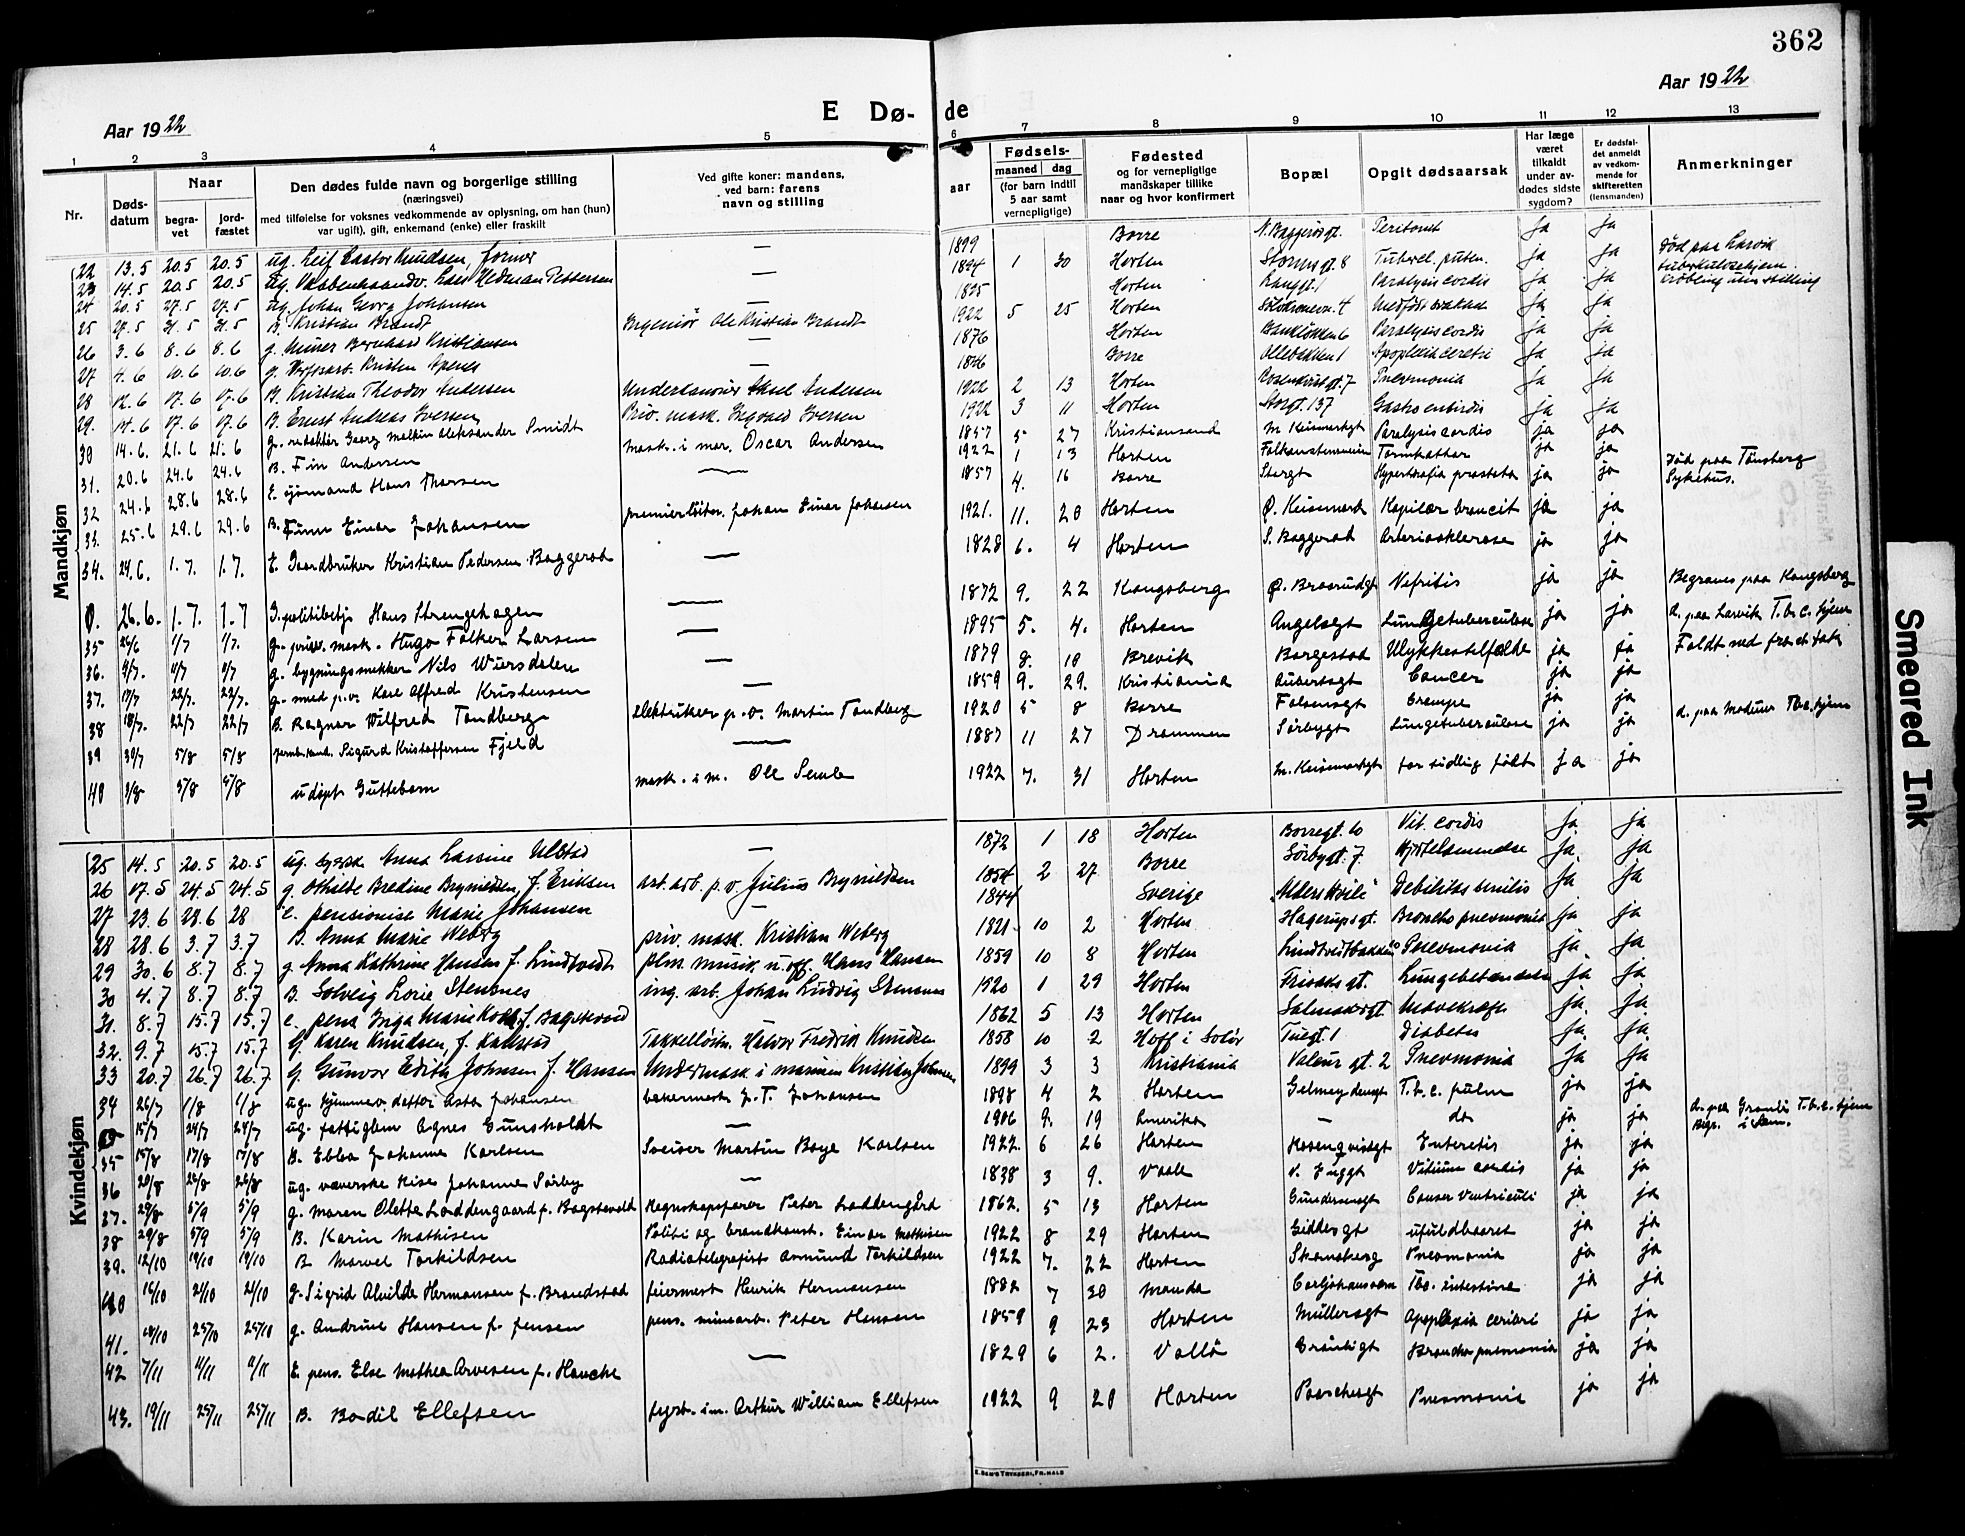 362
Aar 1922
E Dø- de
Aar 1922
1 2 3 4 5 6 7 8 9 10 11 12 13
Nr.
Døds-datum
Naar
begra-vet
jord-fæstet
Den dødes fulde navn og borgerlige stilling
(næringsvei)
med tilføielse for voksnes vedkommende av oplysning, om han (hun)
var ugift), gift, enkemand (enke) eller fraskilt
Ved gifte koner: mandens,
ved barn: farens
navn og stilling
aar
Fødsels-
maaned dag
(for barn indtil
5 aar samt
vernepligtige)
Fødested
og for vernepligtige
mandskaper tillike
naar og hvor konfirmert
Bopæl
Opgit dødsaarsak
Har læge
været
tilkaldt
under av-
dødes sidste
sygdom?
Er dødsfal-
det anmeldt
av vedkom-
mende for
skifteretten
(lensmanden)
Anmerkninger
Mandkjøn
22 13.5 20.5 20.5 ug. Leif Castor Knudsen, former — 1899 Borre N. Baggerødgt. Peritonit Ja Ja
23 14.5 20.5 20.5 ug. Lars Hedman Pettersen — 1894 1 30 Horten Stormsgt. 8 Tubercl. pulm. Ja Ja Død paa Larvik tuberkulosehjem
24 20.5 27.5 27.5 ug. Johan Georg Johansen — 1895 Horten Langgt. 1 Paralysis cordis Ja Ja Krøbling uten stilling
25 27.5 31.5 31.5 B. Kristian Brandt Ingeniør Ole Kristian Brandt 1922 5 25 Horten Ja Ja
26 3.6 8.6 8.6 g. Murer Bernhard Kristiansen — 1876 Horten Bankløkken 6 Paralysis cordis Ja Ja
27 4.6 10.6 10.6 g. Kristen Apenes — 1846 Borre Ollebakken 1 Apoplexia cerebri Ja Ja
28 12.6 17.6 17.6 B. Kristian Theodor Andersen Underkanonier Aksel Andersen 1922 2 13 Horten Rosenkvistgt. 7 Pnevmonia Ja Ja
29. 14.6 17.6 17.6 B. Ernst Andreas Iversen Priv. mask. Ingvald Iversen 1922 3 11 Horten Storgt. 137 Gastro enteritis ja Ja
30 14.6. 21.6 21.6 g. redaktør Georg Aleksander Smidt 1857 5 27 Kristiansand Paralysis cordis ja ja
31. 20.6 24.6 24.6 B. Fin Andersen mask. i mar. Oscar Andersen 1922 1 13 Horten Falkenstensveien Tarmkattar ja ja
32 24.6 28.6 28.6 E. sjømand Hans Thorsen — 1857 4. 16 Borre Storgt Hypertrofia prostata ja ja Død paa Tønsberg Sykehus.
33. 25.6 29.6 29.6 B. Finn Einar Johansen premierløitn. Johan Einar Johansen 1921. 11. 20 Horten Kapilær broncit ja ja
34. 24.6. 1.7. 1.7. E. Gaardbruker Kristian Pedersen Baggerød — 1828 6. 4 Horten S. Baggerød Arteriosklerose ja ja
0. 26.6. 1.7. 1.7 g. politibetj. Hans Strengehagen — 1872 9. 22 Kongsberg Ø. Braarudgt Nefritis ja ja Begraves paa Kongsberg
35 26/6 1/7 1/7. g. priv. mask. Hugo Falker Larsen — 1895 5. 4. Horten Angelsgt Lungetuberculose ja ja d. paa Larvik T.b.c. hjem
36. 4/7 g. bygningssnekker Nils Wiersdalen — 1879 8. 18 Brevik Borgestad Ulykkestilfælde ja ja Faldt ned fra et tak
37. 17/7 22/7. 22/7. g. smed p.v. Karl Alfred Kristensen — 1859 9. 29. Kristiania Aubertsgt Cancer ja ja
38 18/7. 22/7 22/7 B. Ragnar Wilfred Tandberg elektriker p.v. Martin Tandberg 1920 5 8 Borre Falsensgt Crampe ja ja
39 5/8 5/8 Sigurd Kristoffersen Fjeld — 1887 11 27 Drammen Sørbygt Lungetuberculose ja ja d. paa Modum Tb.c. hjem
40 3/8 5/8 5/8 udøpt Guttebarn mask. i m. Ole Semb 1922 7. 31 Horten for tidlig født ja ja
Kvindekjøn
25 14.5 20.5 20.5 ug. Anna Larsine Ulstad — 1872 1 18 Horten Borregt. 10 Vit. cordis Ja Ja
26 17.5 24.5 24.5 g. Othilde Bredine Brynildsen, f. Eriksen art. arb. p.v. Julius Brynildsen 1854 2 27 Borre Sørbygt. 7. Ja. Ja
27 23.6 28.6 28 e. pensionise Marie Johansen — 1844 Sverige "Alders Hvile" Debilitas senilis Ja Ja
28 28.6 3.7 3.7 B. Anna Marie Weberg priv. mask. Kristian Weberg 1921 10 2 Horten Hagerupsgt. Broncho pnevmonia Ja Ja
29 30.6 8.7 8.7 g. Anna Kathrine Hansen f. Lindtvedt musik. u.off. Hans Hansen 1859 10 8 Horten Lindtvedtbakken Pnevmonia Ja Ja
30 4.7 8.7 8.7 B. Solveig Lovie Stensnes ing. arb. Johan Ludvig Stensnes 1920 1 29 Horten Lungebetændelse Ja Ja
31. 8.7 15.7 15.7 e. pens Inga Marie Kock, f. Bagstevold 1862 5 13 Horten Mavekræft Ja. Ja.
32. 9.7 15.7 15.7 g. Karen Knudsen, f. Kallstad Takkelløitn. Halvor Fredrik Knudsen 1858 10 2 Hoff i Solør Tuegt. 1 Diabetes Ja Ja
33 20.7 26.7 26.7 g. Gunvor Edith Johnsen f. Hansen Undermask i marinen Kristian Johnsen 1899 3 3 Kristiania Valeur gt. 2 Pnevmonia Ja Ja
34 26/7 1/8 1/8 ug. hjemmev. datter Asta Johansen bakermest J.T. Johansen 1898 4 2 Horten Gelmeydengt T.b.c. pulm ja ja
0 15/7 24/7 24/7 ug. fattiglem Agnes Gunsholdt — 1906 9. 19 Amerika — do ja ja d. paa Granli T.b.c. hjem Begr. i Sem.
35 15/8 17/8 17/8 B. Ebba Johanne Karlsen Sveiser Martin Boye Karlsen 1922. 6 26 Horten Rosenqvistgt Enteretis ja ja
36 20/8 26/8 26/8 ug. væverske Lise Johanne Sørby — 1838 3 9. Vaale V. Fuggt Vitium cordis ja ja
37. 29/8 5/9 5/9 g. Maren Oletta Loddengaard f. Bagstevold Regnskapsfører Peter Loddengård 1862. 5 13 Horten Gundersensgt Cancer Ventriculi ja ja
38 29/8 5/9 5/9 B. Karin Mathisen Politi og brandkonst. Einar Mathisen 1922 8 29 Horten Geddesgt ufuldbaaret ja ja
39. 12/10 19/10 19/10 B. Marvel Torkildsen Radiotelegrafist Asmund Torkildsen 1922 7. 22 Horten Skansberg Pnevmonia ja ja
40 16/10 21/10 21/10 g. Sigrid Alvilde Hermansen f. Brandstad feiermest Henrik Hermansen 1882 7 30 Mandal Carljohansvern Tbc. intestina ja ja
41. 18/10 25/10 25/10 g. Andrine Hansen f. Jensen pens. minearb. Peter Hansen 1859 9 23 Horten Müllersgt Apoplexia ceriberi ja ja
42 7/11 11/11 11/11 E. pens. Else Mathea Arvesen f. Hauche — 1829 6 2. Vallø Grønligt Broncho pnevmonia ja ja
43. 19/11 25/11 25/11 B. Bodil Ellefsen fyrb. i m. Arthur William Ellefsen 1922 9 20 Horten Paaschesgt Pnevmonia ja ja
E. SEM'S TRYKKERI, FR.HALD
Smeared Ink